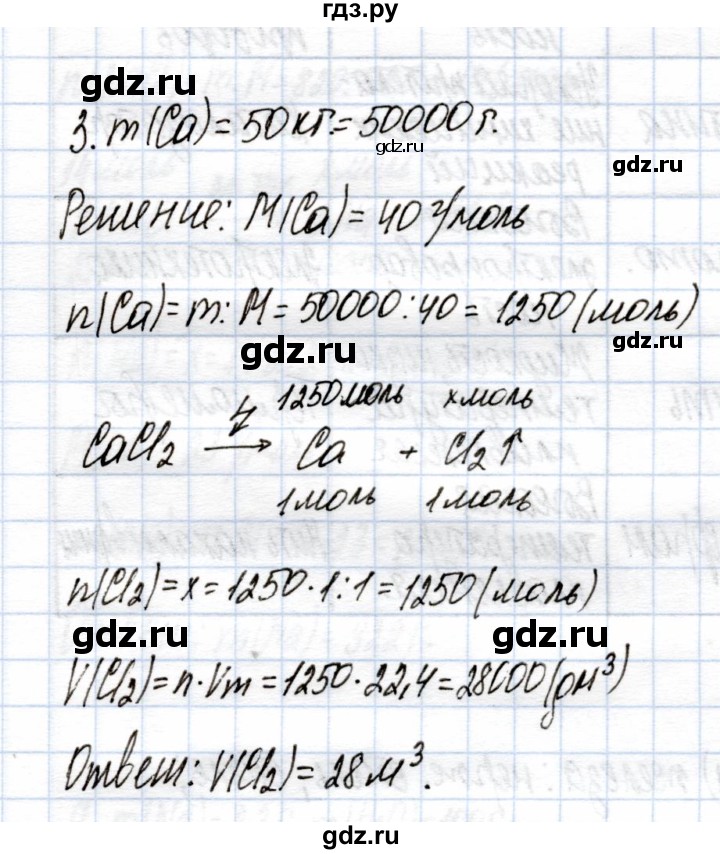 гдз.ру
gdz.ru
gdz.ru
3. m(Ca)=50кг.=50000г.
gdz.ru
gdz.ru
Решение: M(Ca)=40 г/моль
n(Ca)=m:M=50000:40=1250(моль)
gdz.ru
gdz.ru
1250моль xмоль
CaCl₂ → Ca + Cl₂↑
1моль 1моль
n(Cl₂)=x=1250·1:1=1250(моль)
gdz.ru
gdz.ru
V(Cl₂)=n·Vm=1250·22,4=28000(дм³)
Ответ: V(Cl₂)=28м³.
gdz.ru
gdz.ru
gdz.ru